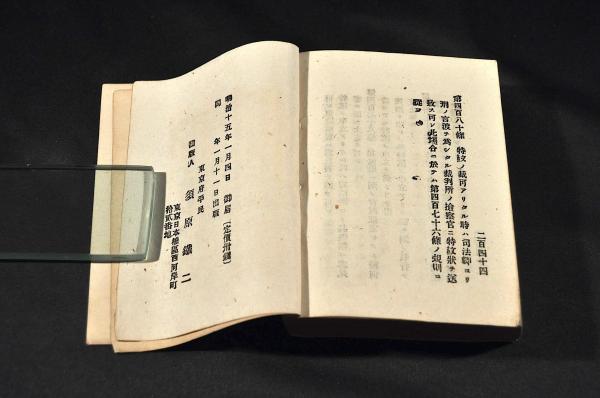 二百四十四
第四百八十條 特赦ノ裁可アリタル時ハ司法卿ヨリ
刑ノ言渡ヲ爲シタル裁判所ノ檢察官ニ特赦狀ヲ送
致ス可シ此塲合ニ於テハ第四百七十六條ノ規則ニ
從フ
明治十五年一月四日 御届 (定價卅錢)
同 年一月十一日出版
東京府平民
出版人 須原鐵二
東京日本橋區西河岸町
拾貳番地